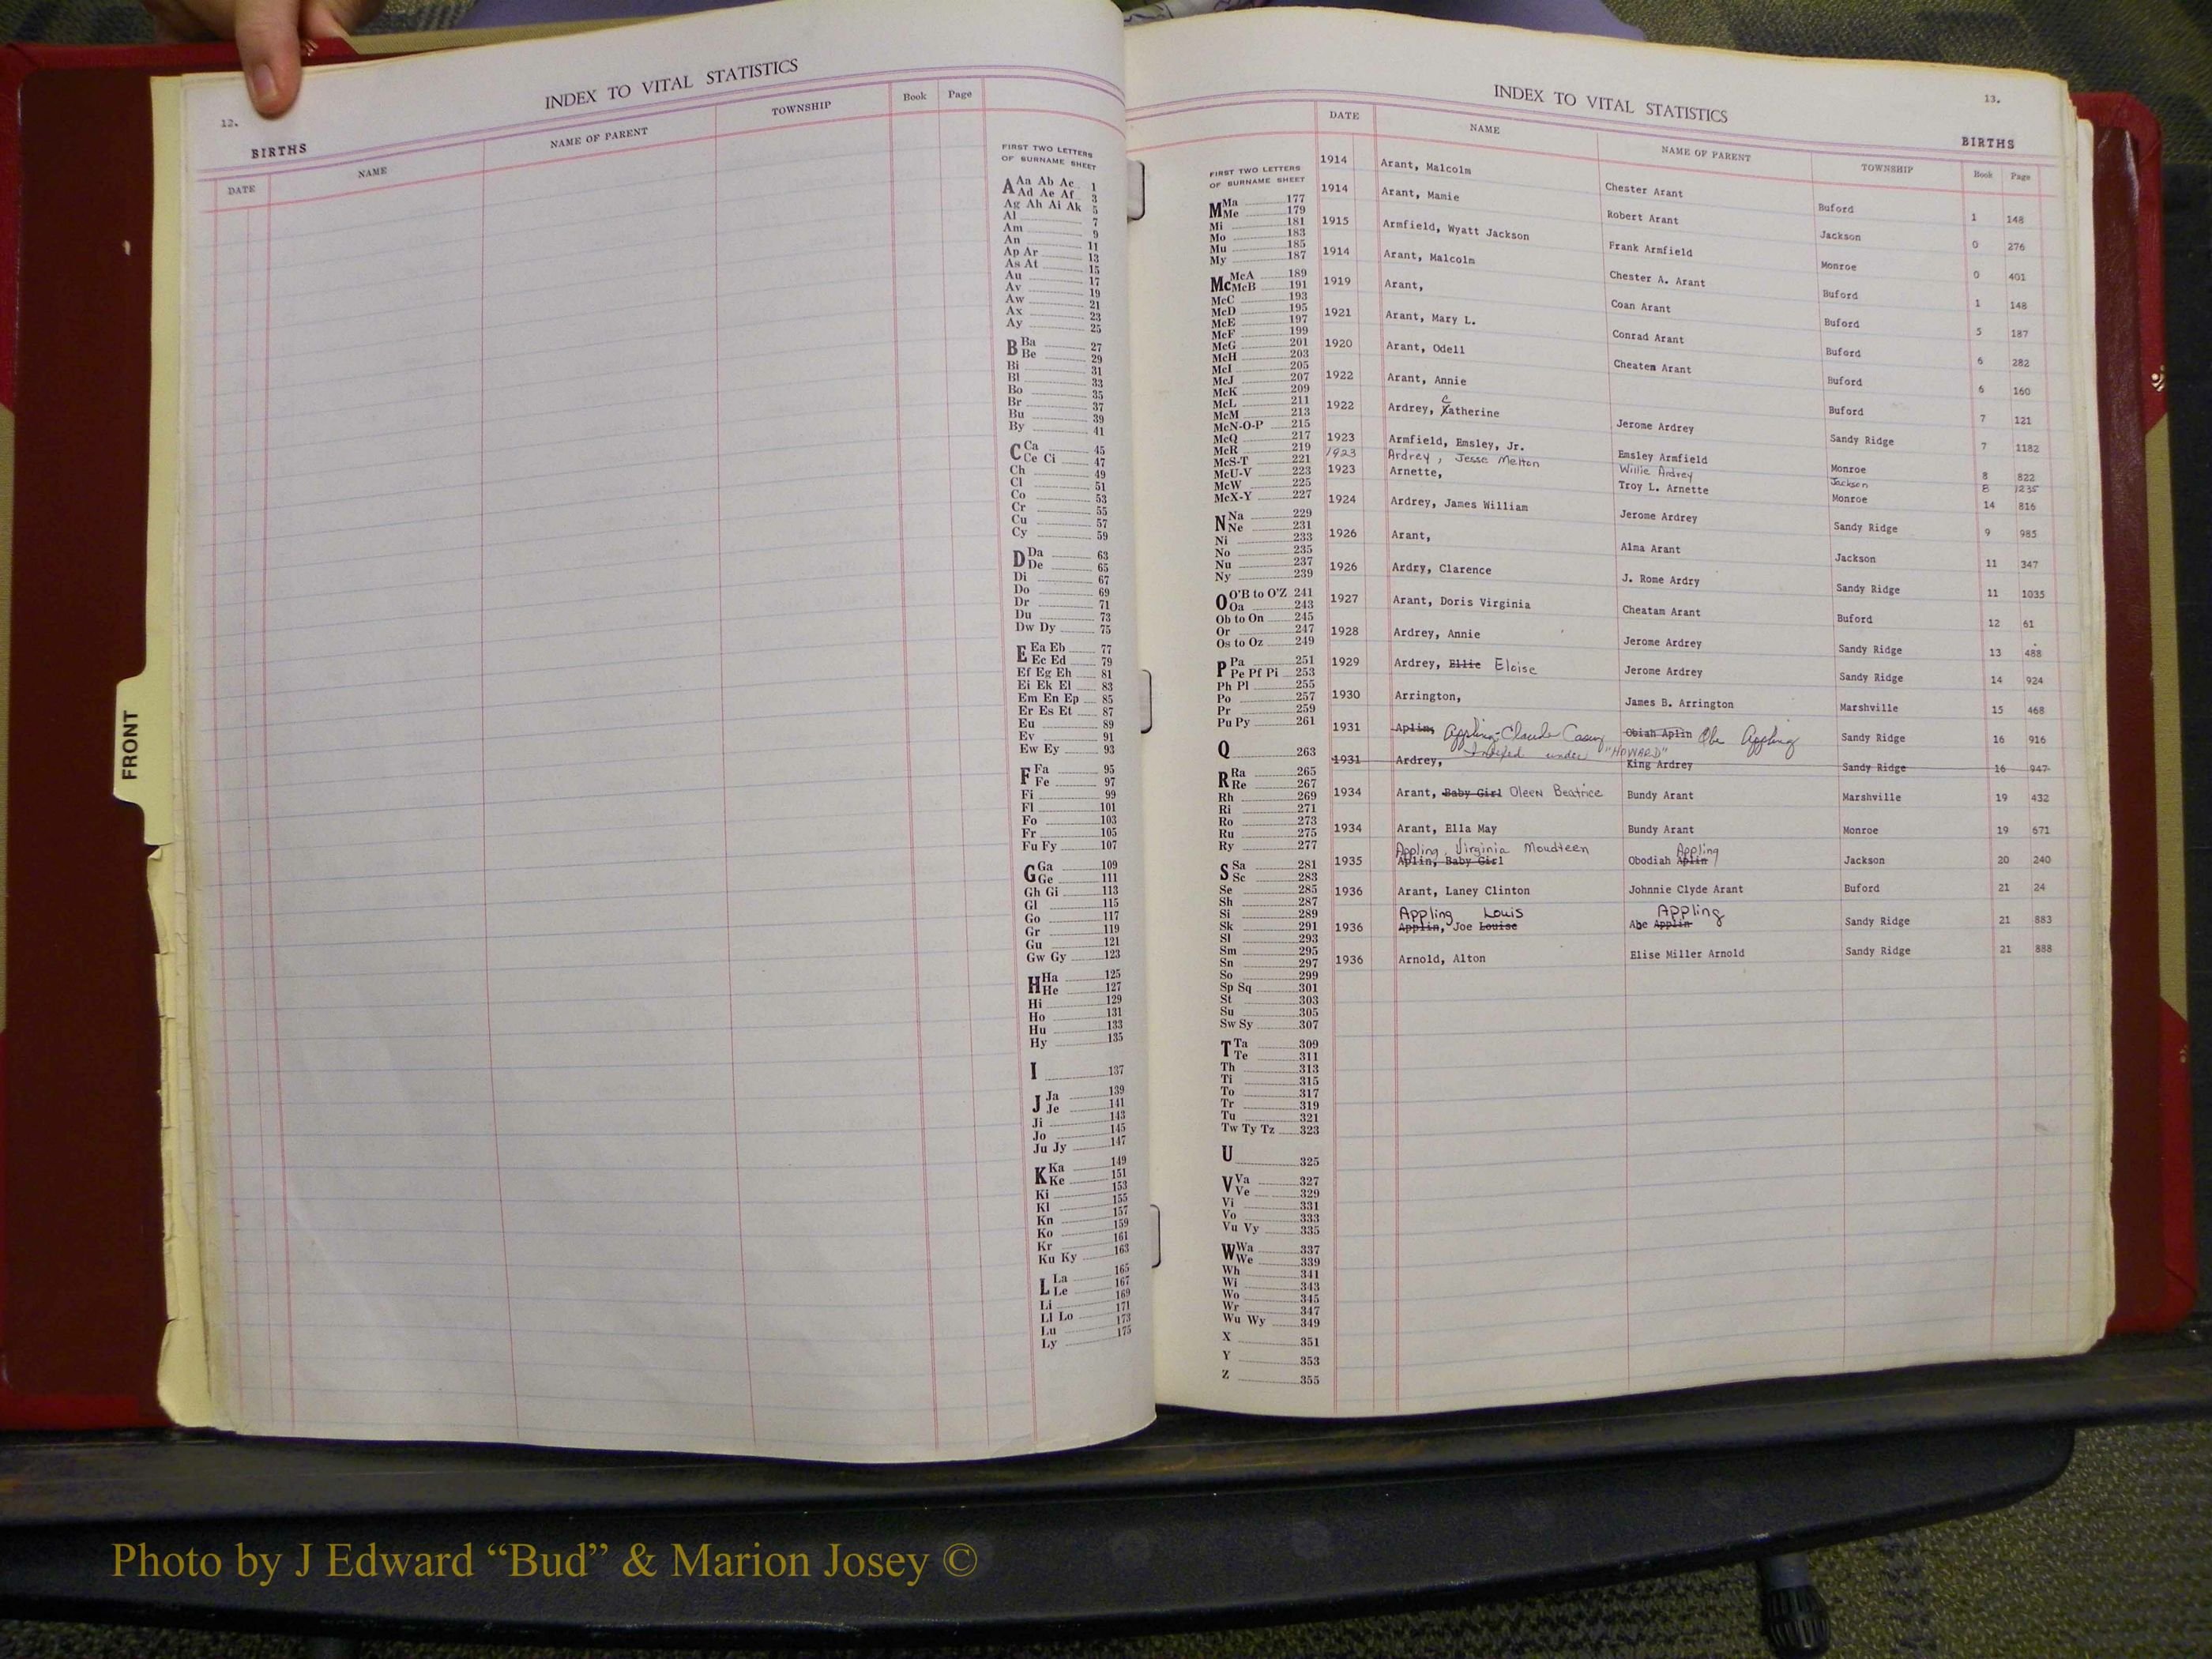 12.
INDEX TO VITAL STATISTICS
BIRTHS
DATE NAME NAME OF PARENT TOWNSHIP Book Page
FIRST TWO LETTERS
OF SURNAME SHEET
A Aa Ab Ac 1
Ad Ae Af 3
Ag Ah Ai Ak 5
Al 7
Am 9
An 11
Ap Ar 13
As At 15
Au 17
Av 19
Aw 21
Ax 23
Ay 25
B Ba 27
Be 29
Bi 31
Bl 33
Bo 35
Br 37
Bu 39
By 41
C Ca 45
Ce Ci 47
Ch 49
Cl 51
Co 53
Cr 55
Cu 57
Cy 59
D Da 63
De 65
Di 67
Do 69
Dr 71
Du 73
Dw Dy 75
E Ea Eb 77
Ec Ed 79
Ef Eg Eh 81
Ei Ek El 83
Em En Ep 85
Er Es Et 87
Eu 89
Ev 91
Ew Ey 93
F Fa 95
Fe 97
Fi 99
Fl 101
Fo 103
Fr 105
Fu Fy 107
G Ga 109
Ge 111
Gh Gi 113
Gl 115
Go 117
Gr 119
Gu 121
Gw Gy 123
H Ha 125
He 127
Hi 129
Ho 131
Hu 133
Hy 135
I 137
J Ja 139
Je 141
Ji 143
Jo 145
Ju Jy 147
K Ka 149
Ke 151
Ki 153
Kl 155
Kn 157
Ko 159
Kr 161
Ku Ky 163
L La 165
Le 167
Li 169
Ll Lo 171
Lu 173
Ly 175
FRONT
INDEX TO VITAL STATISTICS
13.
BIRTHS
FIRST TWO LETTERS
OF SURNAME SHEET
M Ma 177
Me 179
Mi 181
Mo 183
Mu 185
My 187
Mc McA 189
McB 191
McC 193
McD 195
McE 197
McF 199
McG 201
McH 203
McI 205
McJ 207
McK 209
McL 211
McM 213
McN-O-P 215
McQ 217
McR 219
McS-T 221
McU-V 223
McW 225
McX-Y 227
N Na 229
Ne 231
Ni 233
No 235
Nu 237
Ny 239
O O'B to O'Z 241
Oa 243
Ob to On 245
Or 247
Os to Oz 249
P Pa 251
Pe Pf Pi 253
Ph Pl 255
Po 257
Pr 259
Pu Py 261
Q 263
R Ra 265
Re 267
Rh 269
Ri 271
Ro 273
Ru 275
Ry 277
S Sa 281
Sc 283
Se 285
Sh 287
Si 289
Sk 291
Sl 293
Sm 295
Sn 297
So 299
Sp Sq 301
St 303
Su 305
Sw Sy 307
T Ta 309
Te 311
Th 313
Ti 315
To 317
Tr 319
Tu 321
Tw Ty Tz 323
U 325
V Va 327
Ve 329
Vi 331
Vo 333
Vu Vy 335
W Wa 337
We 339
Wh 341
Wi 343
Wo 345
Wr 347
Wu Wy 349
X 351
Y 353
Z 355
DATE NAME NAME OF PARENT TOWNSHIP Book Page
1914 Arant, Malcolm Chester Arant Buford 1 148
1914 Arant, Mamie Robert Arant Jackson 0 276
1915 Armfield, Wyatt Jackson Frank Armfield Monroe 0 401
1914 Arant, Malcolm Chester A. Arant Buford 1 148
1919 Arant, Coan Arant Buford 5 187
1921 Arant, Mary L. Conrad Arant Buford 6 282
1920 Arant, Odell Cheatem Arant Buford 6 160
1922 Arant, Annie Buford 7 121
1922 Ardrey, Catherine Jerome Ardrey Sandy Ridge 7 1182
1923 Armfield, Emsley, Jr. Emsley Armfield Monroe 8 822
1923 Ardrey, Jesse Melton Willie Ardrey Jackson 8 1235
1923 Arnette, Troy L. Arnette Monroe 14 816
1924 Ardrey, James William Jerome Ardrey Sandy Ridge 9 985
1926 Arant, Alma Arant Jackson 11 347
1926 Ardry, Clarence J. Rome Ardry Sandy Ridge 11 1035
1927 Arant, Doris Virginia Cheatam Arant Buford 12 61
1928 Ardrey, Annie Jerome Ardrey Sandy Ridge 13 488
1929 Ardrey, Ellie Eloise Jerome Ardrey Sandy Ridge 14 924
1930 Arrington, James B. Arrington Marshville 15 468
1931 Aplin, Appling, Claude Obiah Aplin Obe Appling Sandy Ridge 16 916
Indexed under "HOWARD"
1931 Ardrey, King Ardrey Sandy Ridge 16 947
1934 Arant, Baby Girl Oleen Beatrice Bundy Arant Marshville 19 432
1934 Arant, Ella May Bundy Arant Monroe 19 671
Appling, Virginia Moudteen Appling
1935 Aplin, Baby Girl Obodiah Aplin Jackson 20 240
1936 Arant, Laney Clinton Johnnie Clyde Arant Buford 21 24
Appling Louis Appling
1936 Applin, Joe Louise Abe Applin Sandy Ridge 21 883
1936 Arnold, Alton Elise Miller Arnold Sandy Ridge 21 888
Photo by J Edward “Bud” & Marion Josey ©